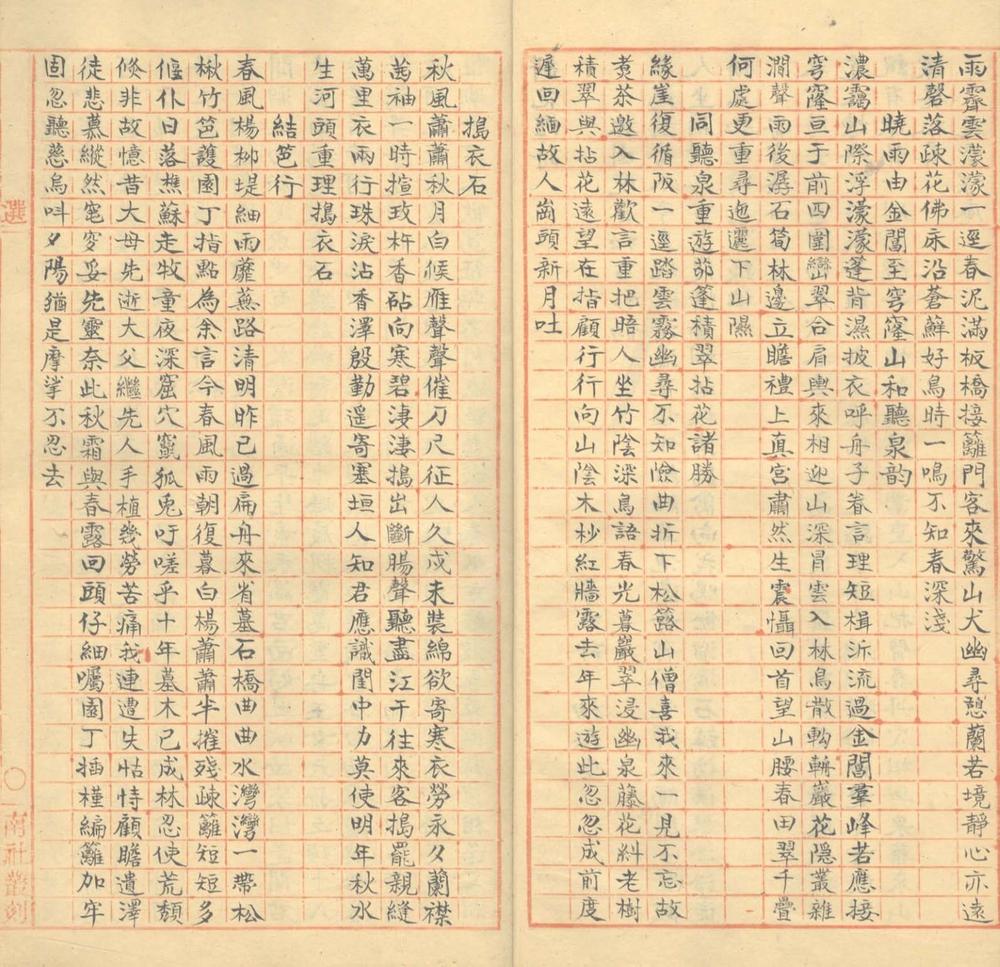 雨霽雲濛濛一逕春泥滿板橋接籬門客來驚山犬幽尋憩蘭若境靜心亦遠
清磬落疎花佛床沿蒼蘚好鳥時一鳴不知春深淺
曉雨由金閶至穹窿山和聽泉韵
濃靄山際浮濛濛蓬背濕披衣呼舟子眷言理短楫泝流過金閶羣峰若應接
穹窿亘于前四圍巒翠合肩輿來相迎山深冒雲入林鳥散鞫輈巖花隱叢雜
澗聲雨後潺石筍林邊立瞻禮上真宮肅然生震懾回首望山腰春田翠千疊
何處更重尋迤邐下山隰
同聽泉重遊茆蓬積翠拈花諸勝
緣崖復循阪一逕踏雲霧幽尋不知險曲折下松路山僧喜我來一見不忘故
煑茶邀入林歡言重把晤人坐竹陰深鳥語春光暮巖翠浸幽泉藤花糾老樹
積翠與拈花遠望在指顧行行向山陰木杪紅牆露去年來遊此忽忽成前度
遲回緬故人崗頭新月吐
搗衣石
秋風蕭蕭秋月白候雁聲聲催刀尺征人久戍未裝綿欲寄寒衣勞永夕蘭襟
茜袖一時揎玫杵香砧向寒碧淒淒搗出斷腸聲聽盡江干往來客搗罷親縫
萬里衣兩行珠淚沾香澤殷勤遥寄塞垣人知君應識閨中力莫使明年秋水
生河頭重理搗衣石
結笆行
春風楊柳堤細雨蘼蕪路清明昨已過扁舟來省墓石橋曲曲水灣灣一帶松
楸竹笆護園丁指點為余言今春風雨朝復暮白楊蕭蕭半摧殘疎籬短短多
偃仆日落樵蘇走牧童夜深窟穴竄狐兎吁嗟乎十年墓木已成林忍使荒頽
倐非故憶昔大母先逝大父繼先人手植幾勞苦痛我連遭失怙恃顧瞻遺澤
徒悲慕縱然窀穸妥先靈奈此秋霜與春露回頭仔細囑園丁插槿編籬加牢
固忍聽慈烏呌夕陽猶是摩挲不忍去
選
南社叢刻